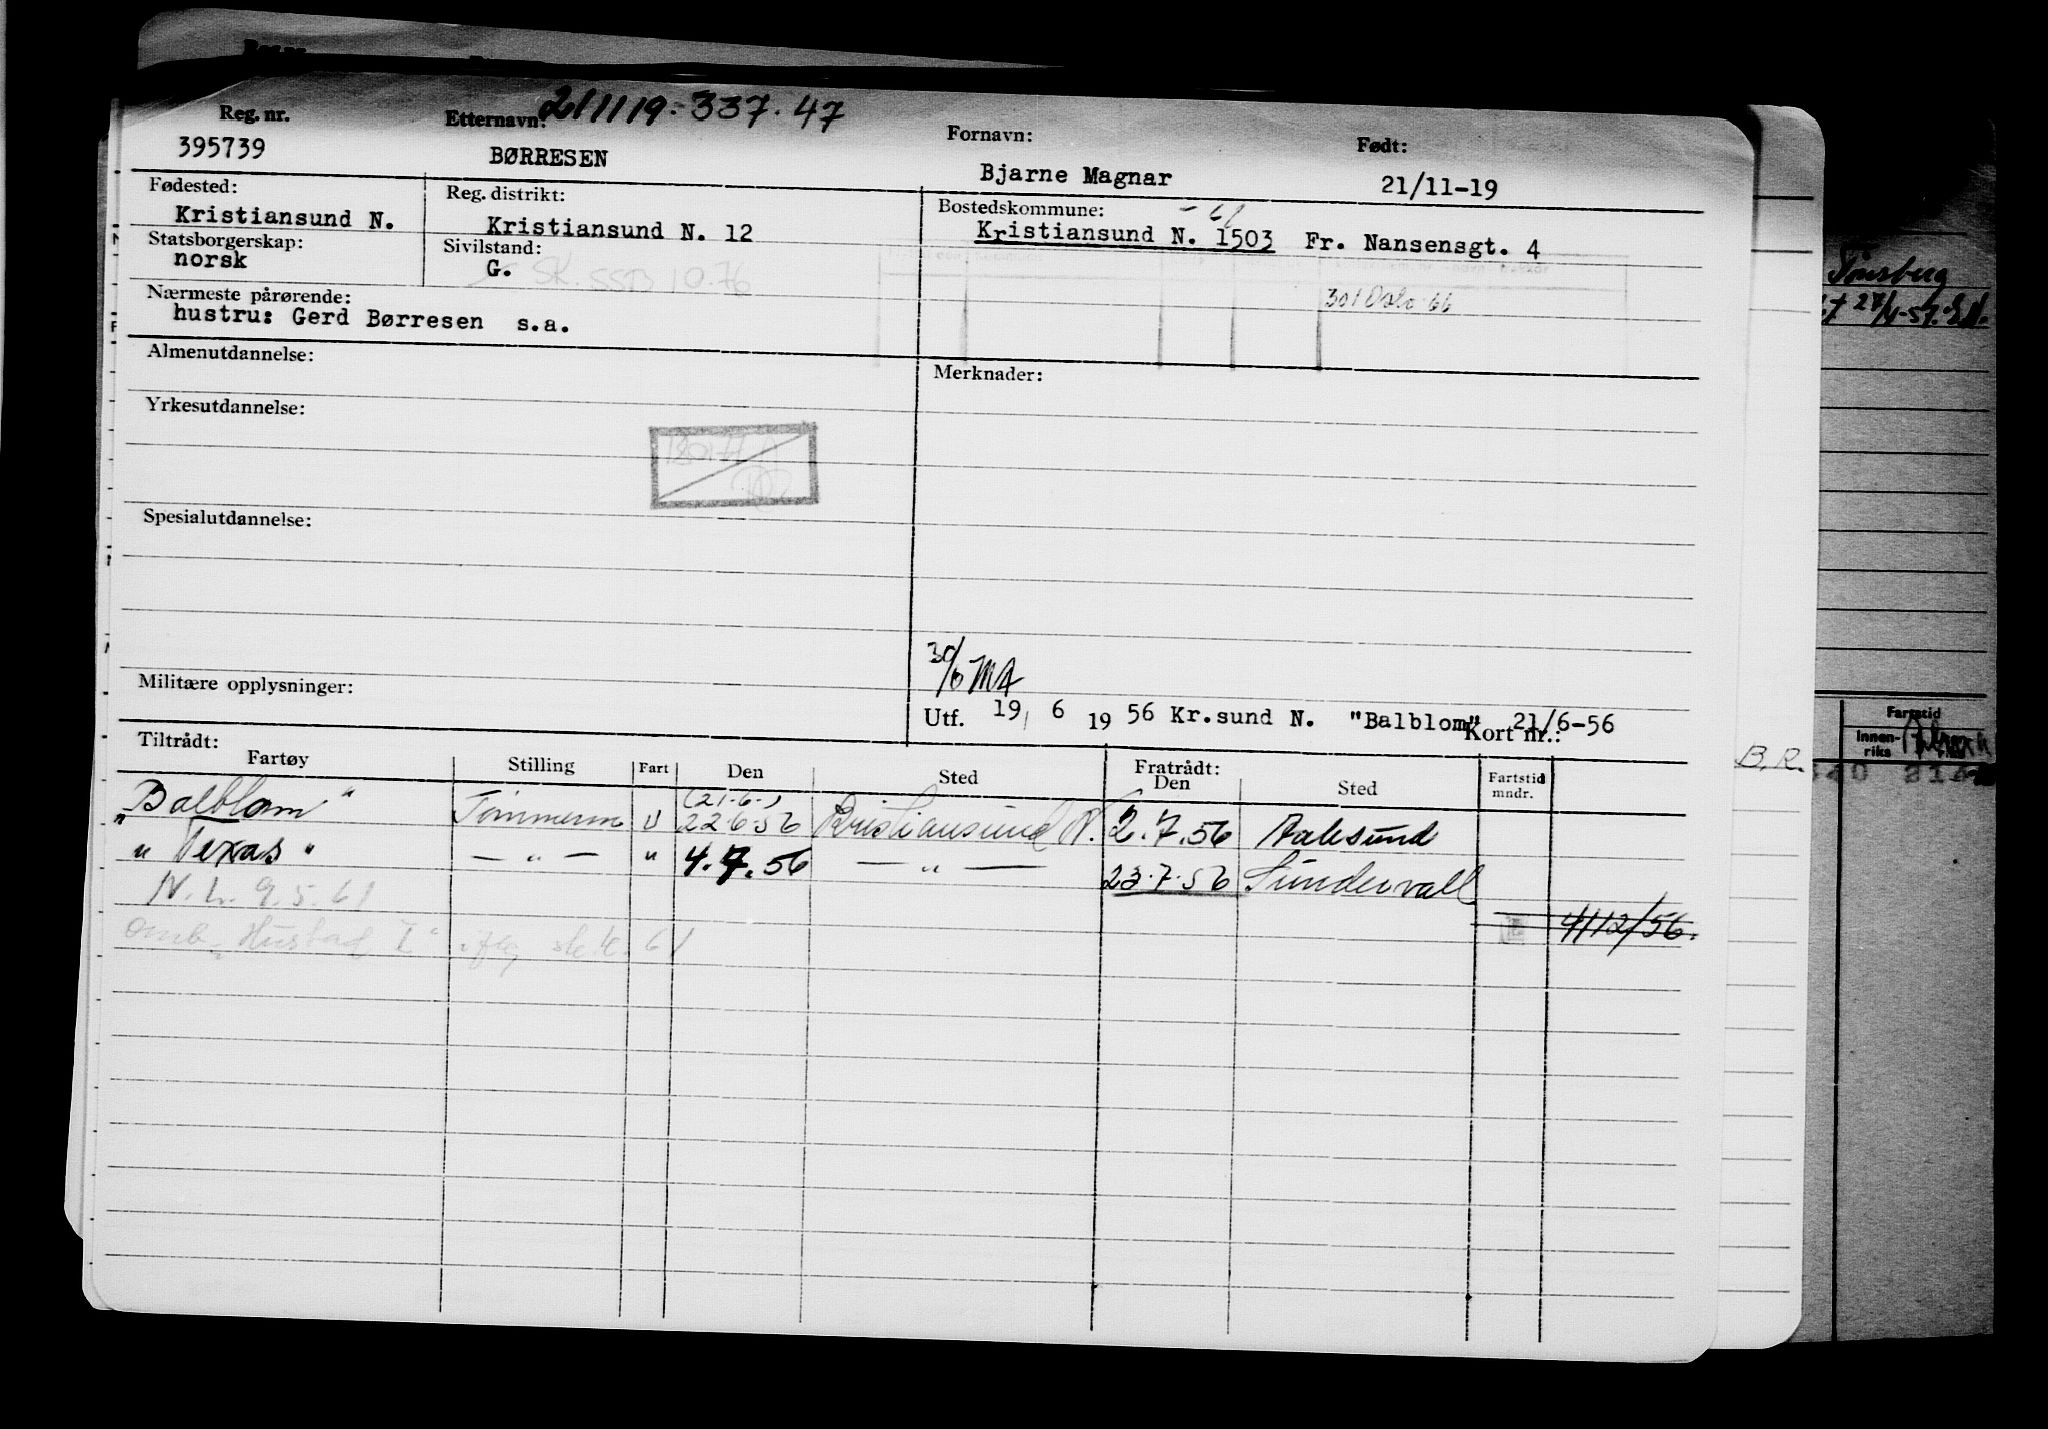 211119-337.47
Reg. nr. Etternavn: Fornavn: Født:
395739 BØRRESEN Bjarne Magnar 21/11-19
Fødested: Reg. distrikt: Bostedskommune: -61
Kristiansund N. Kristiansund N. 12 Kristiansund N. 1503 Fr. Nansensgt. 4
Statsborgerskap: Sivilstand:
norsk G. SK. SSB 10.76
Nærmeste pårørende: 301 Oslo 66
hustru: Gerd Børresen s.a.
Almenutdannelse: Merknader:
Yrkesutdannelse:
Spesialutdannelse:
Militære opplysninger:
30/6 MA
Utf. 19/ 6 19 56 Kr.sund N. "Balblom" Kort nr.: 21/6-56
Tiltrådt: Fratrådt:
Fartøy Stilling Fart Den Sted Den Sted Fartstid mndr.
(21.6.)
"Balblom" Tømmerm U 22.6.56 Kristiansund N. 2.7.56 Aalesund
"Texas" — " — " 4.7.56 — " — 23.7.56 Sundsvall
N.L. 9.5.61
4/12/56.
omb. "Hustad I" iflg. 61
Tønsberg
Fartstid
Innen-
riks
B.R.